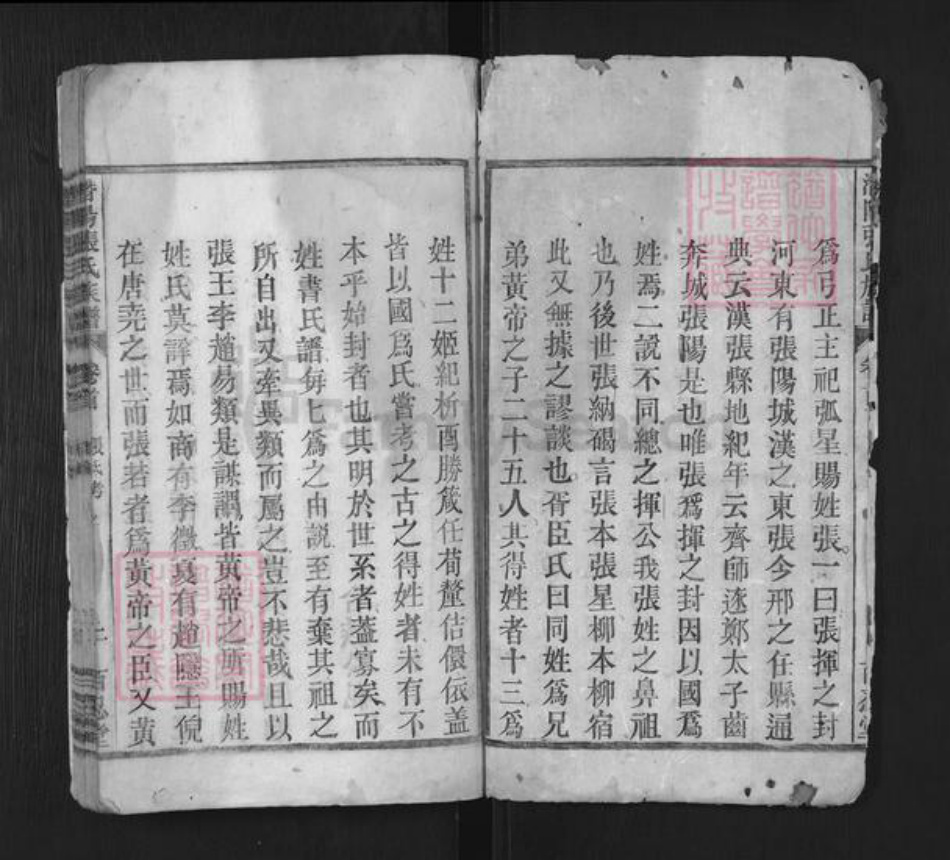 爲弓正主祀弧星賜姓張。一曰張揮之封
河東有張陽城漢之東張今邢之任縣通
典云漢張縣地紀年云齊師逐鄭太子齒
奔城張陽是也唯張爲揮之封因以國爲
姓焉二說不同總之揮公我張姓之鼻祖
也乃後世張納碣言張本張星柳本柳宿
此又無據之謬談也。胥臣氏曰同姓爲兄
弟黃帝之子二十五人其得姓者十三爲
姓十二姬紀析酉勝箴任荀釐佶儇依蓋
皆以國爲氏嘗考之古之得姓者未有不
本乎始封者也其明於世系者蓋寡矣而
姓書氏譜每七爲之由説至有棄其祖之
所自出又牽異類而屬之豈不悲哉且以
張王李趙易類是謀謂皆黃帝之所賜姓
姓氏莫詳焉如商有李徵夏有趙隱王倪
在唐堯之世而張若者爲黃帝之臣又黃
張氏族譜 卷首